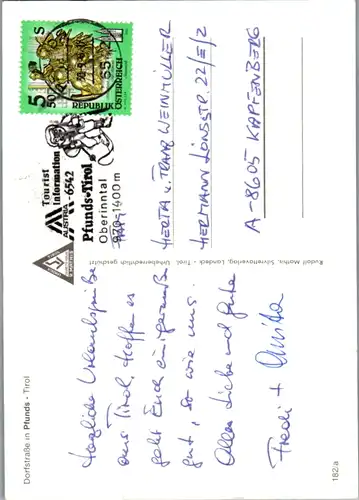 Dorfstraße in Pfunds - Tirol
Herzliche Urlaubsgrüße
aus Tirol, hoffe es
geht Euch einigermaßen
gut, so wie uns.
Alles Liebe und Gute
Fredi + Anita
182/a
Rudolf Mathis, Schrottverlag, Landeck - Tirol. Urheberrechtlich geschützt
Tourist
Information
AUSTRIA A-6542
Pfunds-Tirol
Oberinntal
970-1400m
5 50 S
REPUBLIK ÖSTERREICH
6542
HERTA u. FRANZ WEINMÜLLER
HERMANN LÖNSSTR. 22/E/2
A-8605 KAPFENBERG